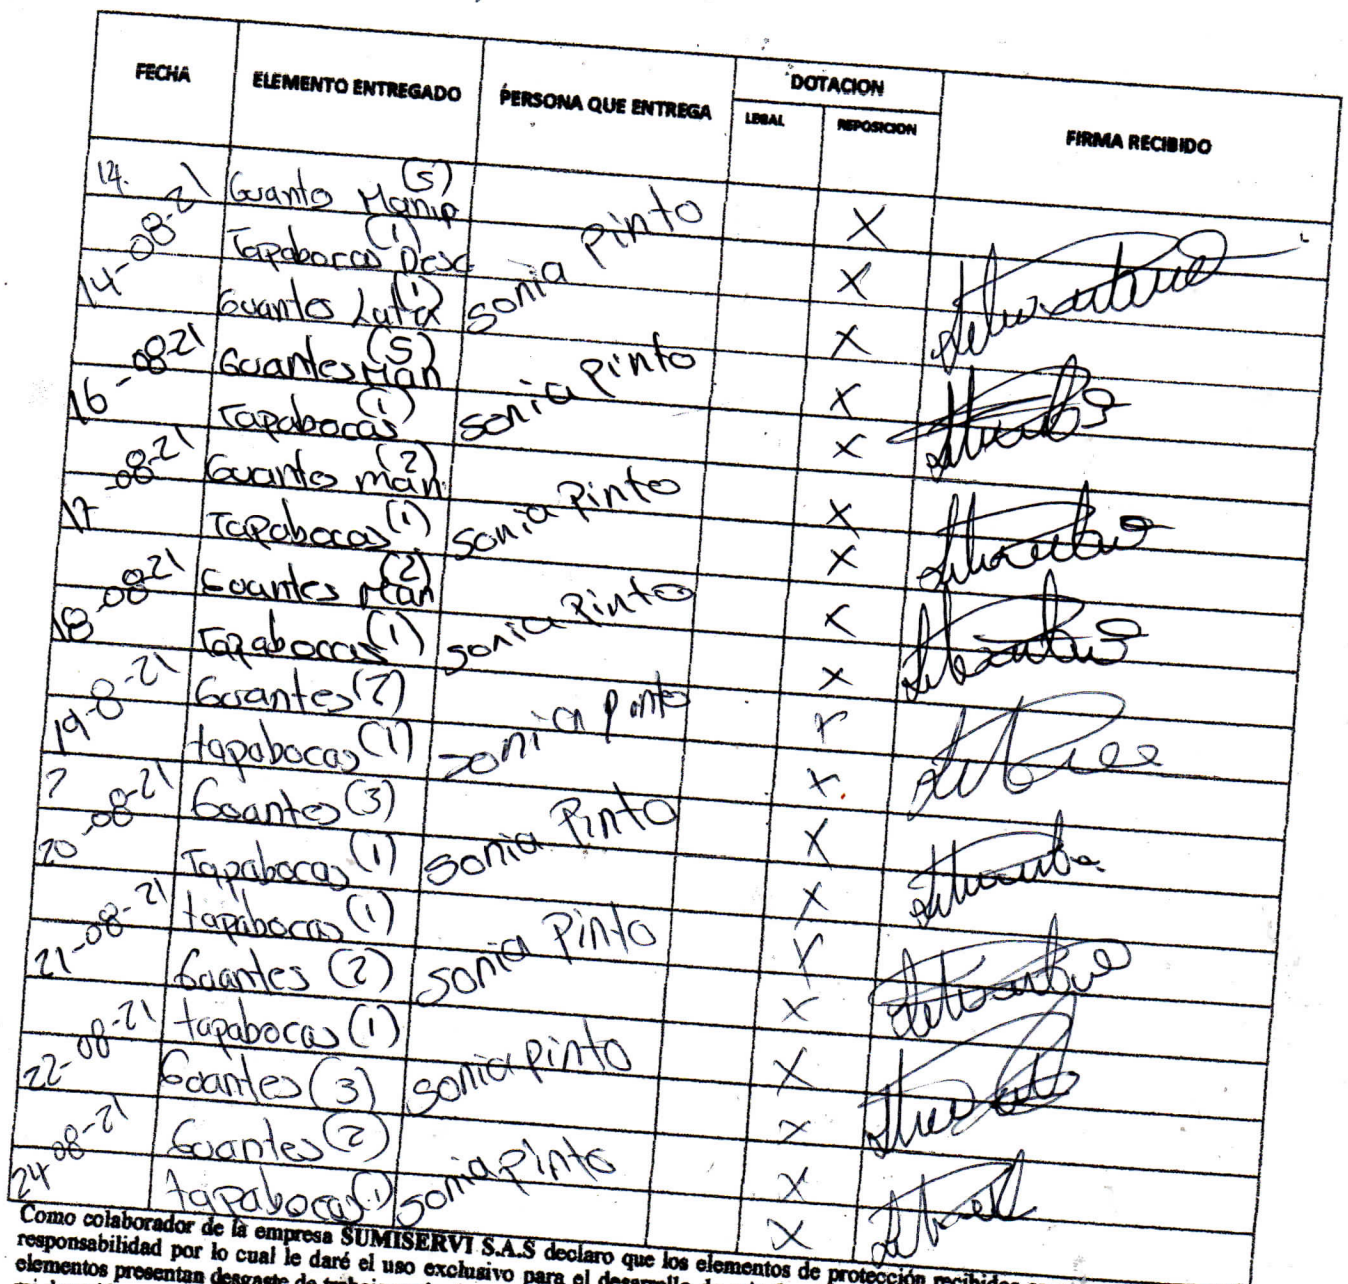 FECHA ELEMENTO ENTREGADO PERSONA QUE ENTREGA DOTACION FIRMA RECIBIDO
LEGAL REPOSICION
14-08-21 Guanto Manip (5) X
Tapabocas Desc (1) sonia pinto X
14- Guantos (1) X
16-08-21 Guantes Man (5) sonia pinto X
Tapabocas (1) X
17-08-21 Guantes man (2) sonia Pinto X
Tapabocas (1) X
18-08-21 Guantes Man (2) sonia Pinto X
Tapabocas (1) X
19-8-21 Guantes (2) sonia pinto X
tapabocas (1) X
20-08-21 Guantes (3) sonia Pinto X
Tapabocas (1) X
21-08-21 tapabocas (1) sonia Pinto X
Guantes (2) X
22-08-21 tapabocas (1) sonia pinto X
Guantes (3) X
24-08-21 Guantes (2) sonia pinto X
tapabocas (1) X
Como colaborador de la empresa SUMISERVI S.A.S declaro que los elementos de protección
responsabilidad por lo cual le daré el uso exclusivo para el
elementos presentan desgaste de